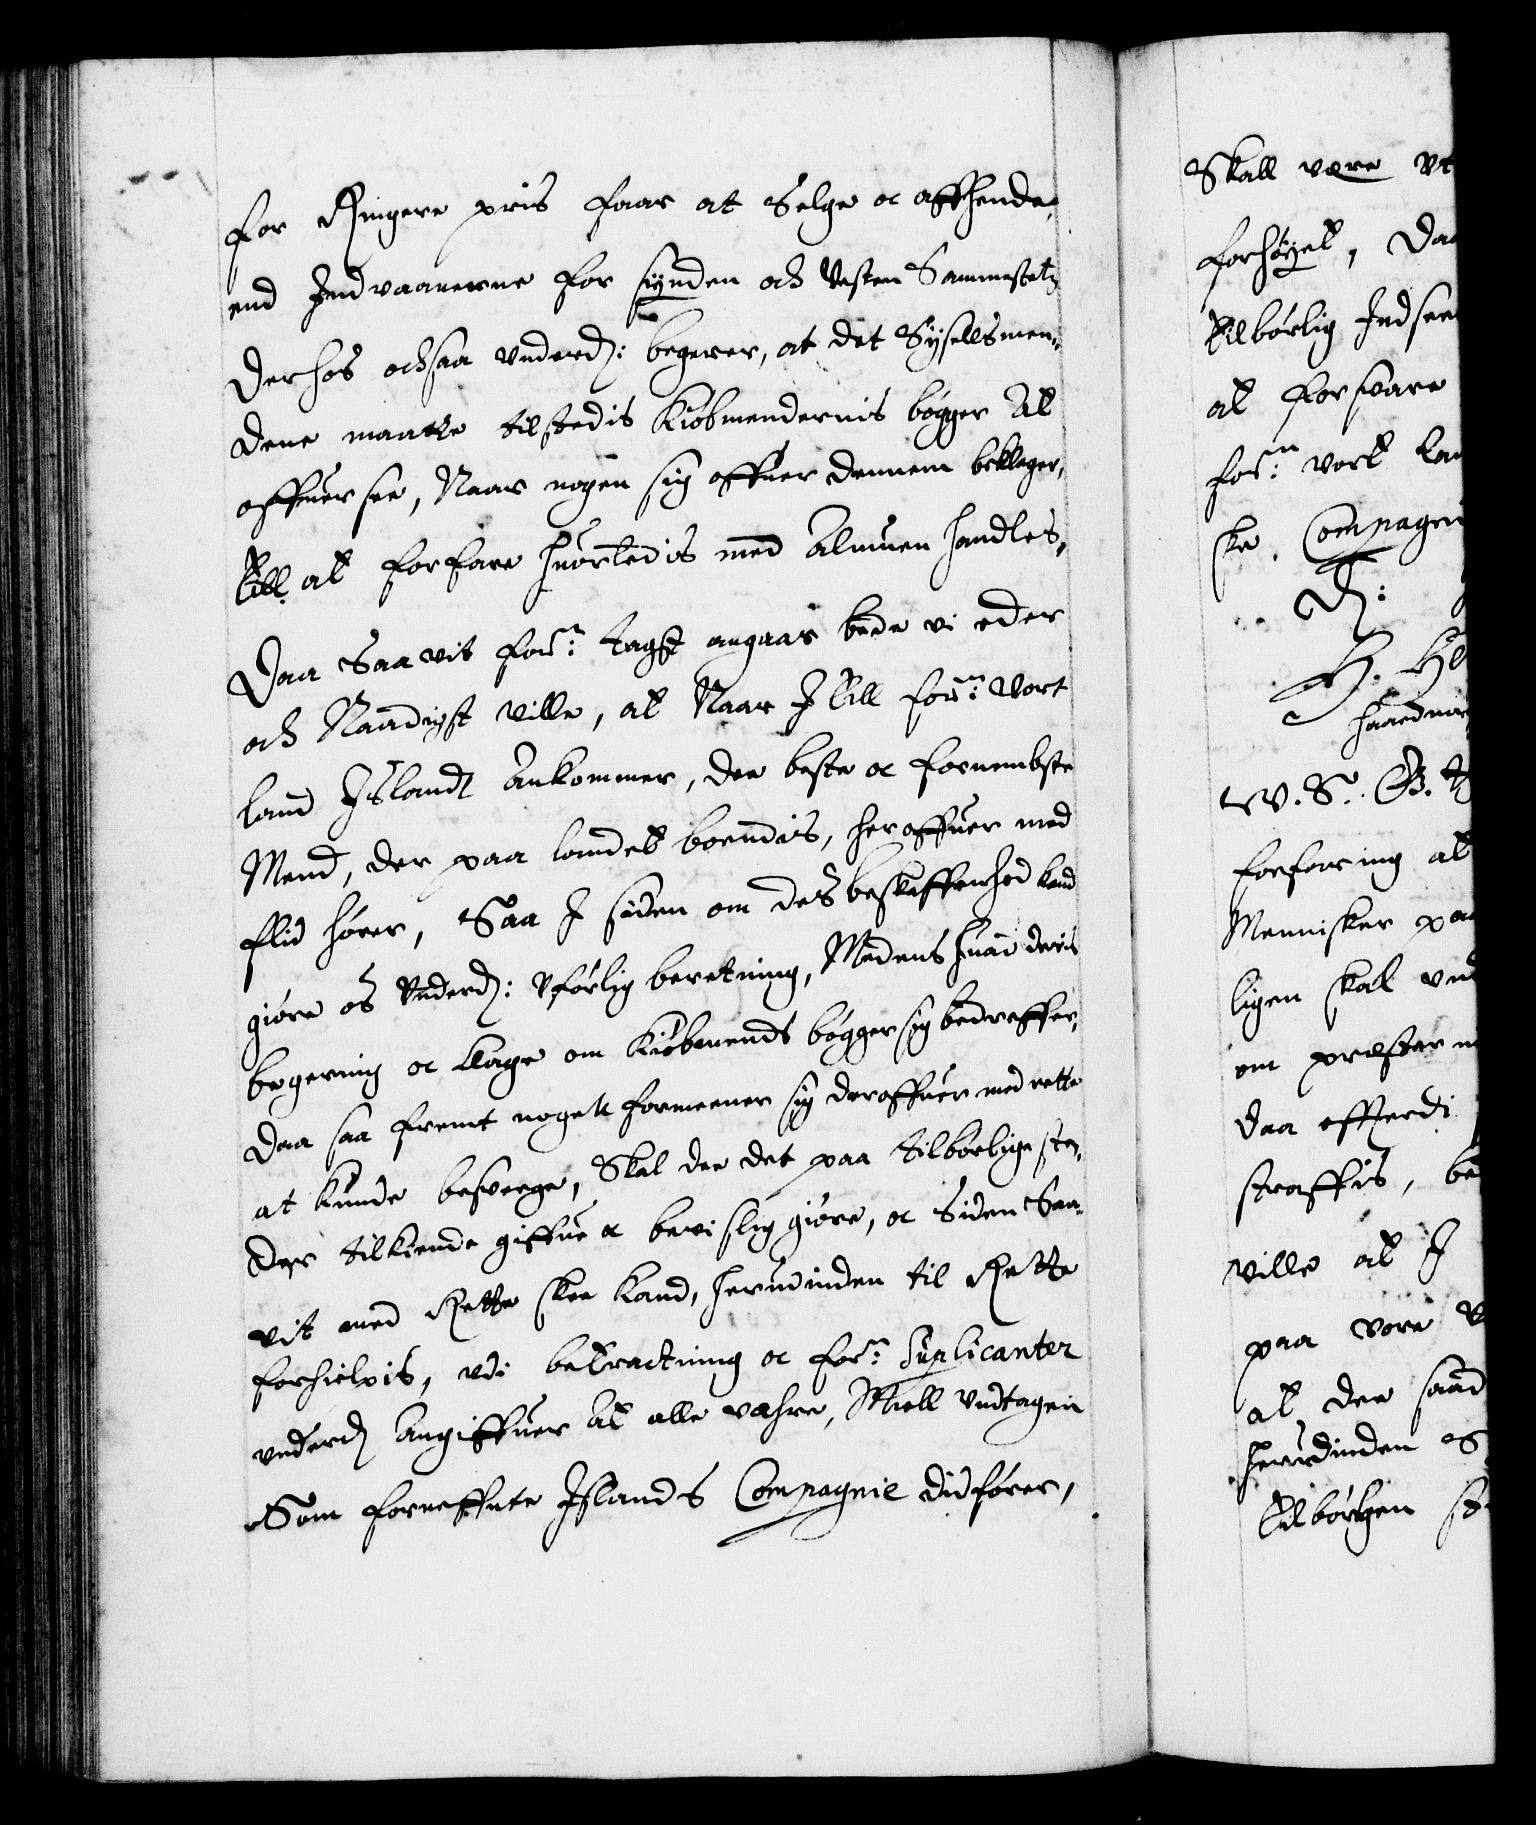 for Ringere pris faar at Selge oc affhende,
end Indvaanerne for sÿnden och Vesten Sammestetz
Derhos ochsaa underd: begerer, at det Sÿselsmen-
dene maatte tilstedis Kiøbmendernis bøgger At
offuersee, Naar nogen sig offuer dennem beklager,
till at forfare huorledis med Almuen handles,
Daa Saavit for.ne Taxt angaar bede vi eder
och Naadigst ville, at Naar I till for.ne Vort
land Island Ankommer, de beste oc fornembste
Mend, der paa landet boendis, heroffuer med
flid hører, Saa I siden om des beskaffenhed kand
giøre os Underd: Uførlig beretning, Medens huad deris
begering oc klage om Kiøbmends bøgger sig bedreffer,
Daa saa fremt nogen formeener sig deroffuer med rette
at kunde besverge, Skal de det paa tilbørlige ste-
der tilkiende giffue oc bevislig giøre, oc Siden Saa-
vit med Rette skee kand, herudinden til Rette
forhielpis, udi betractning oc for.ne Suplicanter
underd Angiffuer At alle vahre, Miell undtagen
Som forneffnte Islands Compagnie didfører,
Skall være
forhøÿet, Daa
tilbørlig Indsee
at forsvare
for.ne vort lan
ske Compagni
D:
W. S. G. T
forfaring at
Mennisker paa
ligen skal und
om præster
daa efterdi
straffis, be
ville at I
paa vore
at de saad
herudinden
tilbørligen